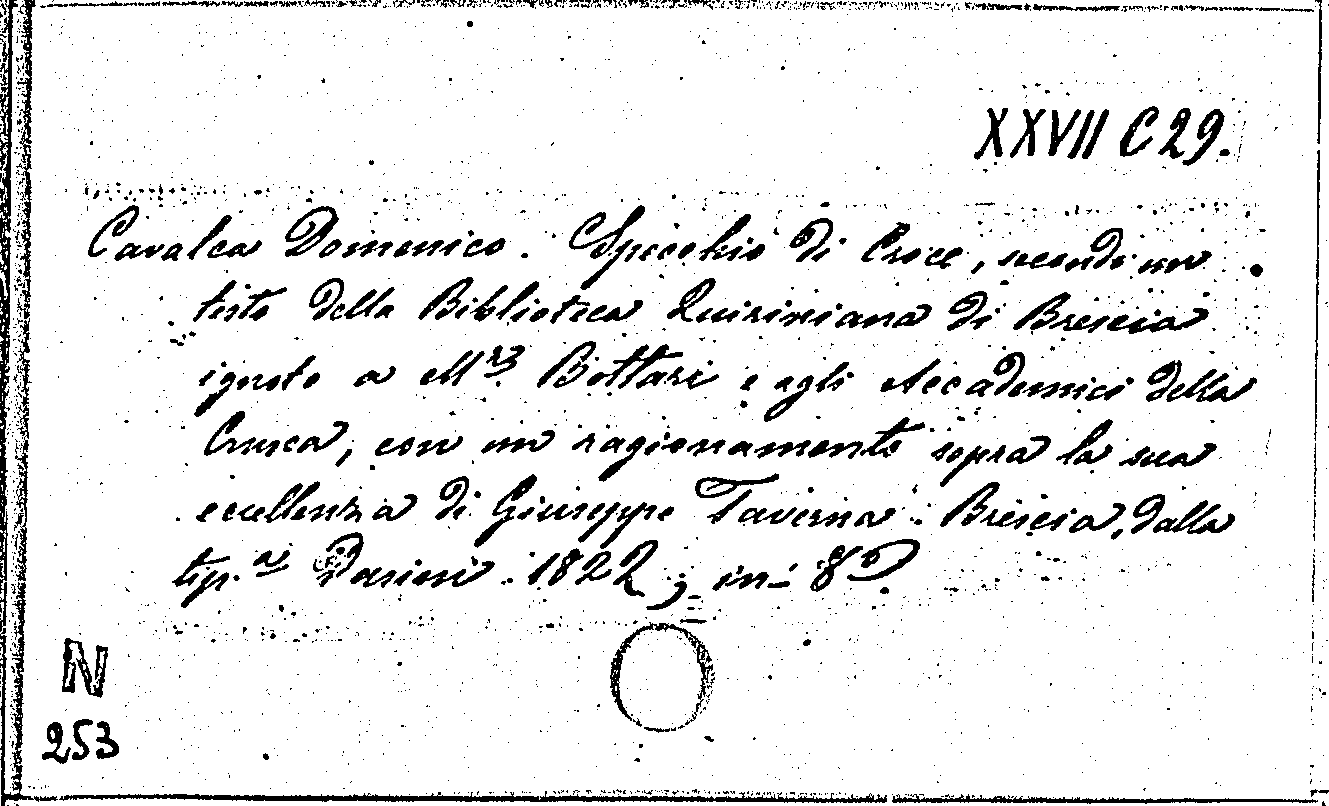 XXVII C 29.
Cavalca Domenico. Specchio di Croce, secondo un
testo della Biblioteca Quiriniana di Brescia
ignoto a Mr. Bottari e agli Accademici della
Crusca, con un ragionamento sopra la sua
eccellenza di Giuseppe Taverna. Brescia, dalla
tip.a Pasini. 1822, in-8o.
N
253